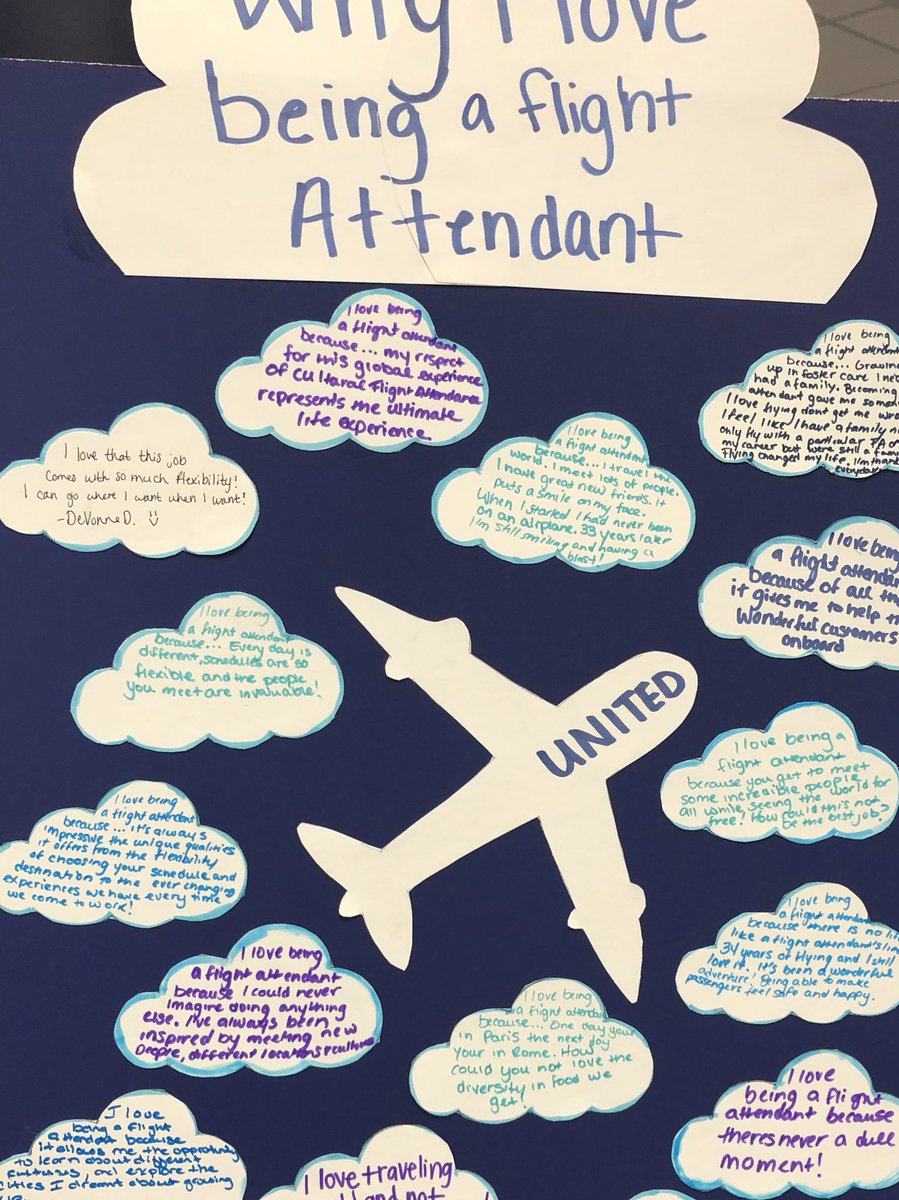 Why I love
being a flight
Attendant
I love being
a flight attendant
because... my respect
for this global experience
of cultural Flight Attendants
represents the ultimate
life experience.
I love being
a flight attendant
because... Growing
up in foster care I
had a family. Becoming
attendant gave me
I love flying dont get me
I feel like I have a family
only fly with a particular FA
my career but were still a family
Flying changed my life. I'm
everyday
I love that this job
comes with so much flexibility!
I can go where I want when I want!
-DeVonne D.
I love being
a flight attendant
because... I travel the
world. I meet lots of people.
I have great new friends. It
puts a smile on my face.
When I started I had never been
on an airplane. 33 years later
I'm still smiling and having a
blast!
I love being
a flight attendant
because of all the
it gives me to help the
wonderful customers
onboard
I love being
a flight attendant
because... Every day is
different, schedules are so
flexible and the people
you meet are invaluable!
UNITED
I love being a
flight attendant
because you get to meet
some incredible people
all while seeing the world for
free! How could this not
be the best job?
I love being
a flight attendant
because... it's always
impressive the unique qualities
it offers from the flexibility
of choosing your schedule and
destination to the ever changing
experiences we have every time
we come to work!
I love being
a flight attendant
because there is no
like a flight attendant's
34 years of flying and I still
love it. it's been a wonderful
adventure! Being able to make
passengers feel safe and happy.
I love being
a flight attendant
because I could never
imagine doing anything
else. I've always been
inspired by meeting new
people, different locations
I love being
a flight attendant
because... One day your
in Paris the next day
your in Rome. How
could you not love the
diversity in food we
get!
I love
being a flight
attendant because
it allows me the opportunity
to learn about different
cultures, and explore the
cities I dreamt about growing
I love
being a flight
attendant because
theres never a dull
moment!
I love traveling
and not